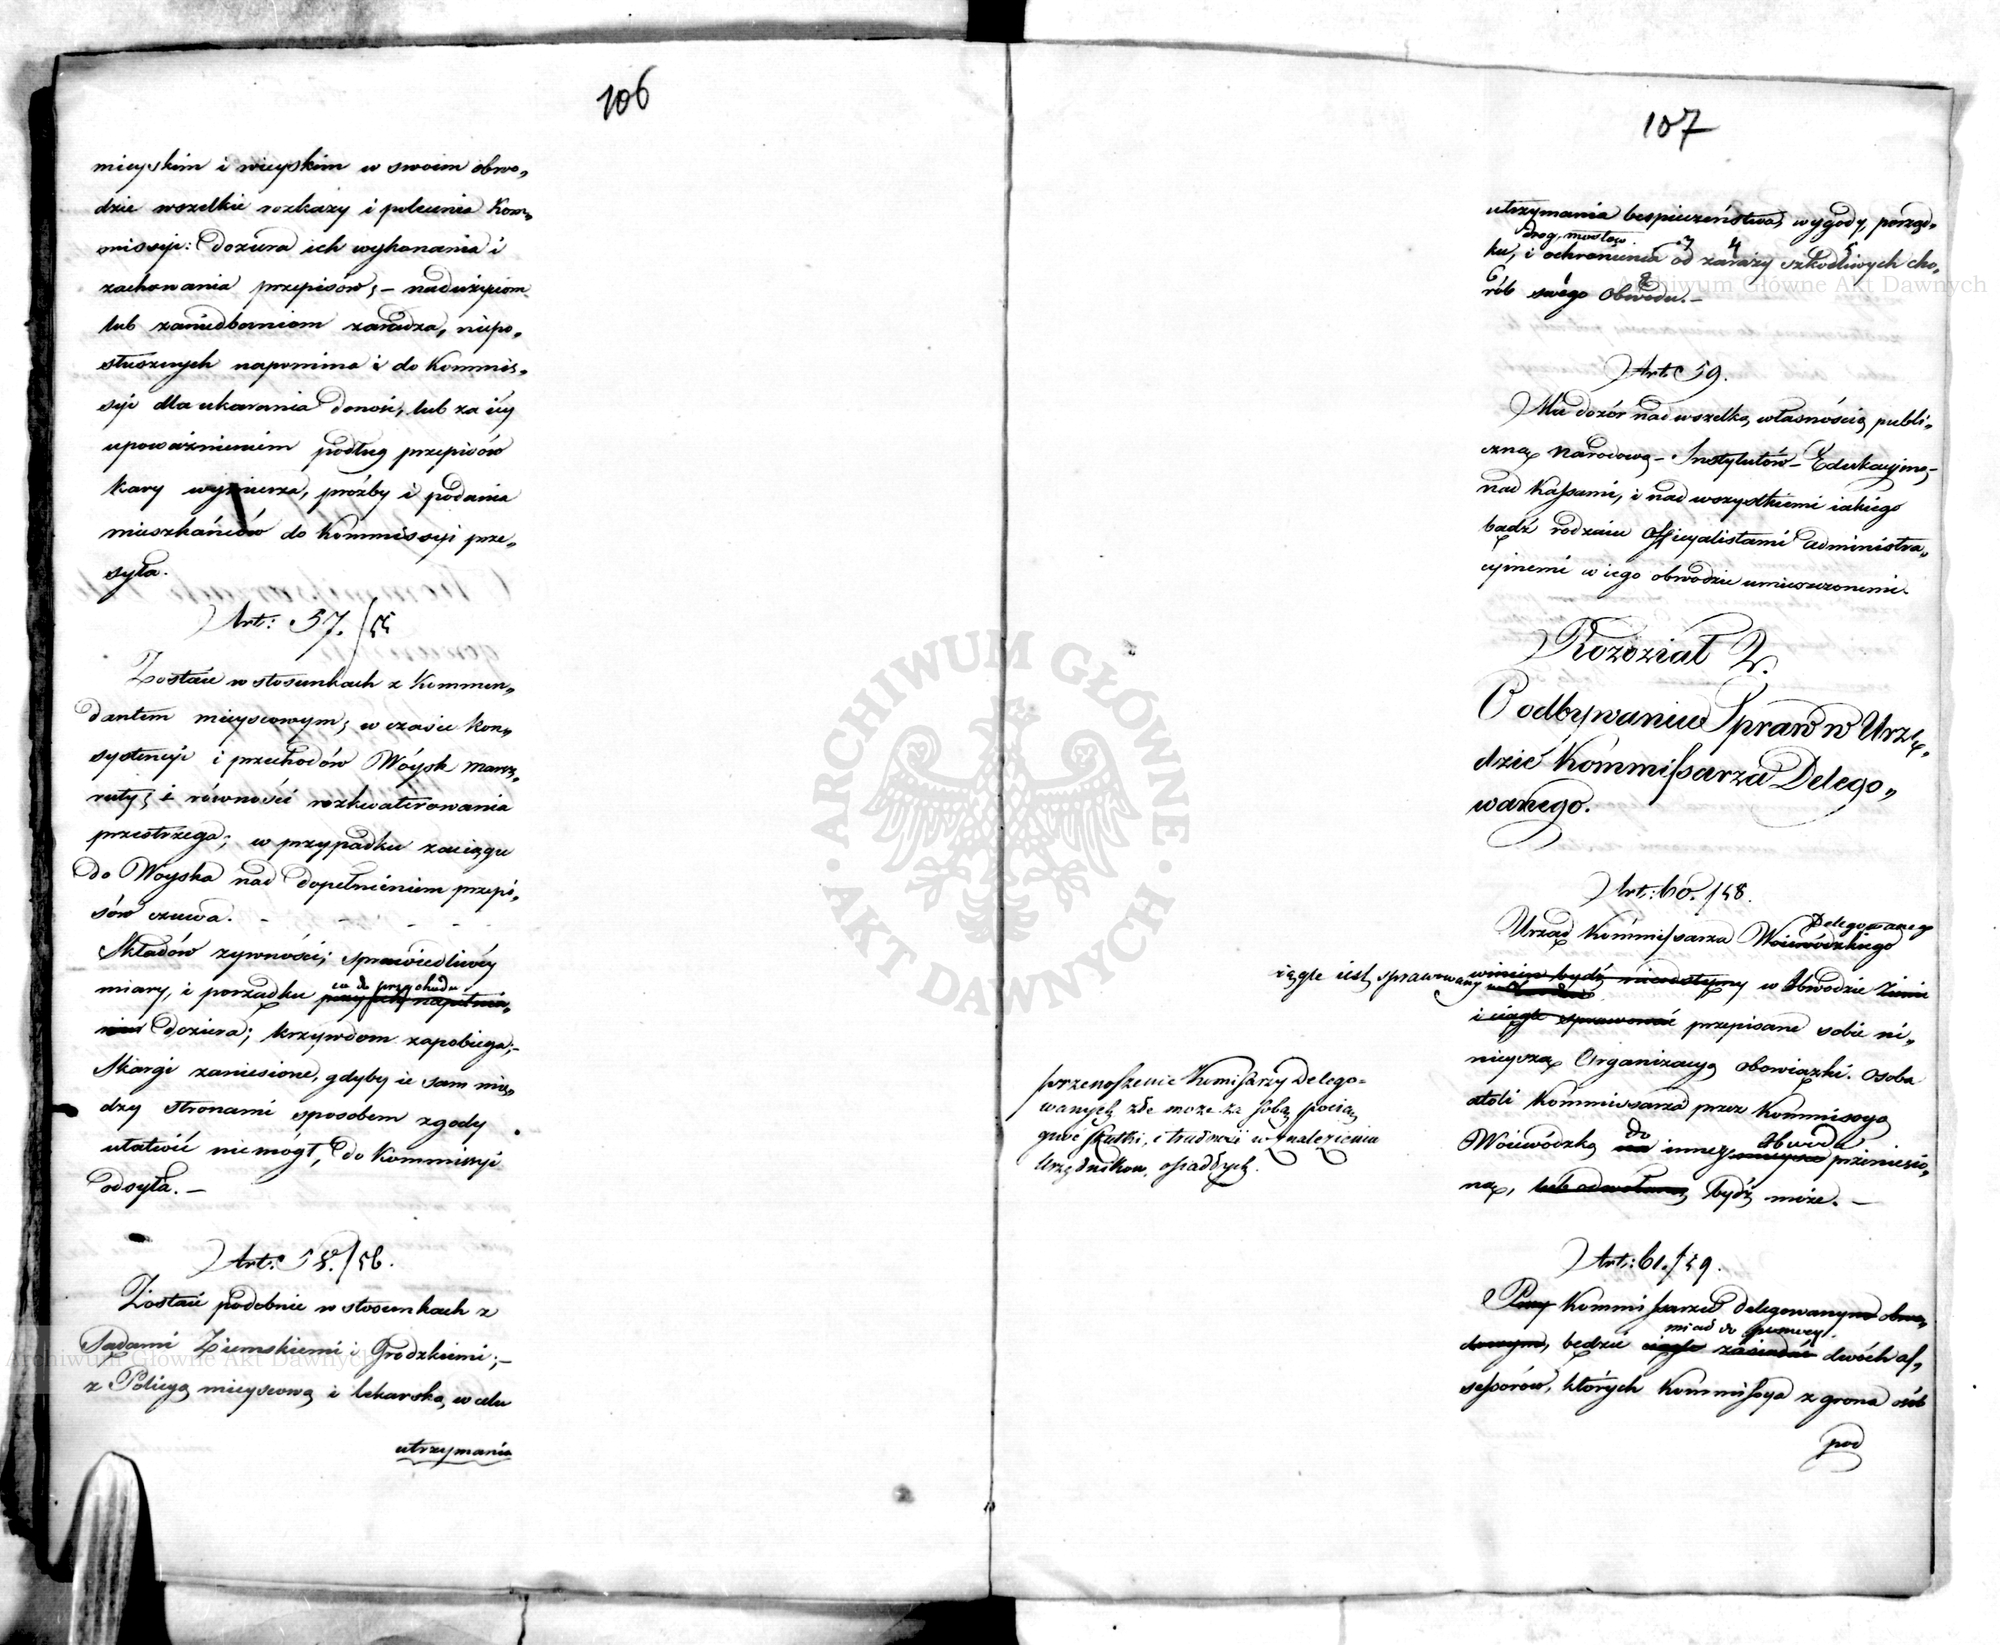 106
mieyskim i wieyskim w swoim obwo„
dzie wszelkie rozkazy i polecenia Kom„
missyi: doziera ich wykonania i
zachowania przepisów; – nadużyciom
lub zaniedbaniom zaradza, niepo„
słusznych napomina i do Kommis„
syi dla ukarania donosi, lub za iéy
upoważnieniem podług przepisów
kary wymierza, próźby i podania
mieszkańców do Kommissyi prze„
syła.
Art: 57. /55
Zostaie w stosunkach z Kommen„
dantem mieyscowym; w czasie kon„
systencyi i przechodów Woysk marsz„
ruty; i równości rozkwaterowania
przestrzega; w przypadku zaciągu
do Woyska nad dopełnieniem przepi„
sów czuwa. – – – –
Składów żywności; sprawiedliwéy
miary, i porządku co do przychodu
doziera; krzywdom zapobiega; –
Skargi zaniesione, gdyby ie sam mię„
dzy stronami sposobem zgody
ułatwić niemógł, do Kommissyi
odsyła. –
Art: 58. /56.
Zostaie podobnie w stosunkach z
Sądami Ziemskiemi i Grodzkiemi; –
z Policyą mieyscową i lekarską, w celu
utrzymania
107
utrzymania bespieczeństwa, wygody, porząd„
dróg, mostów
ku, i ochronienia od zarazy szkodliwych cho„
rób swégo Obwodu. –
Art: 59.
Ma dozór nad wszelką własnością publi„
czną Narodową – Instytutów – Edukacyiną –
nad Kassami, i nad wszystkiemi iakiego
bądź rodzaiu Officyalistami administra„
cyinemi w iego obwodzie umieszczonemi.
Rozdział 2.
O odbywaniu Spraw w Urzę„
dzie Kommissarza Delego„
wanego.
Art: 60. /58.
Delegowanego
Urząd Kommissarza Woiewódzkiego
ciągle iest sprawowany winien bydź nieodstępny w Obwodzie
i ciągle sprawować przepisane sobie ni„
nieyszą Organizacyą obowiązki. Osoba
atoli Kommissarza przez Kommissyą
Woiewódzką na do inne mieysce Obwodu przeniesio„
ną, lub odwołaną bydź może. –
przenoszenie Komisarzy Delego=
wanych złe może za sobą pocią
gnąć skutki, i trudność w znalezieniu
Urzędników osiadłych.
Art: 61. /59.
Przy Kommissarzu delegowanym obwo„
miał do pomocy
dowym, będzie ciągle zasiadać dwóch as„
sessorów, których Kommissya z grona osób
pod
ARCHIWUM GŁÓWNE AKT DAWNYCH
Archiwum Główne Akt Dawnych
Archiwum Główne Akt Dawnych